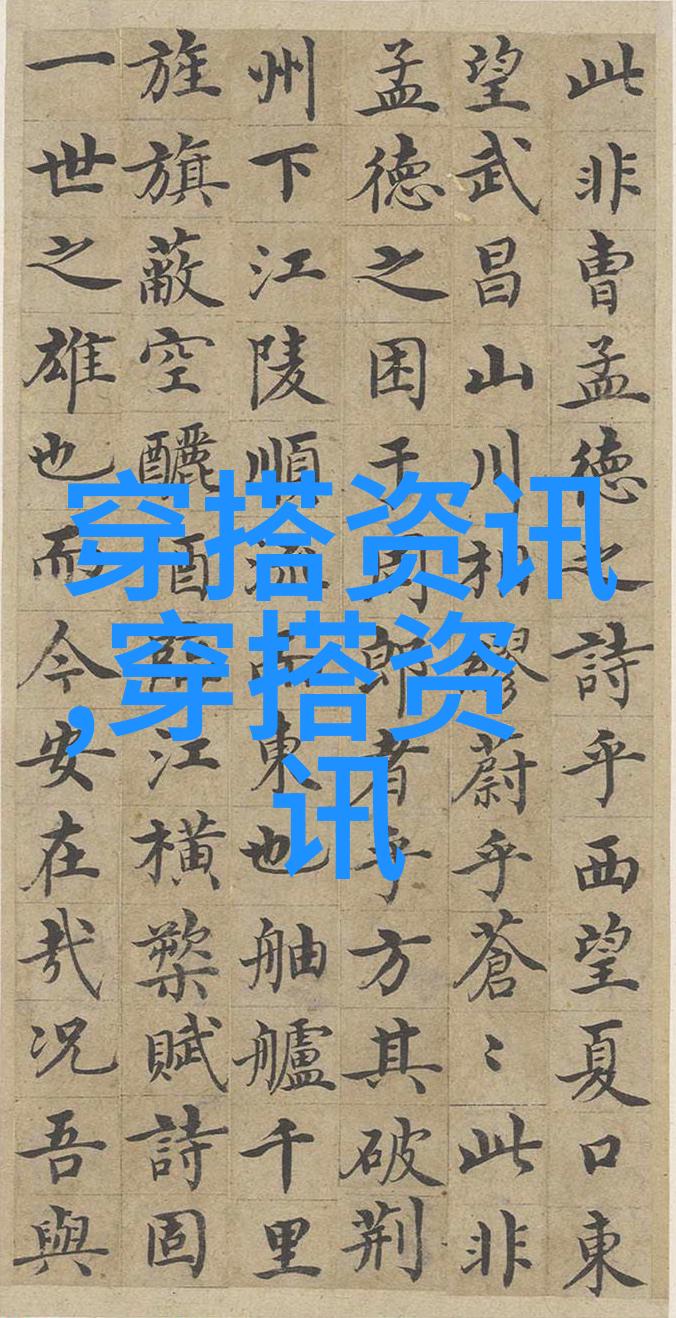 此非曹孟德之詩乎西望夏口東
望武昌山川相繆蔚乎蒼〻此非
孟德之困于周郎者乎方其破荆
州下江陵順而東也舳艫千里
旌旗蔽空釃酒江橫槊賦詩固
一世之雄也而今安在哉况吾與
穿搭资讯
,穿搭资
讯